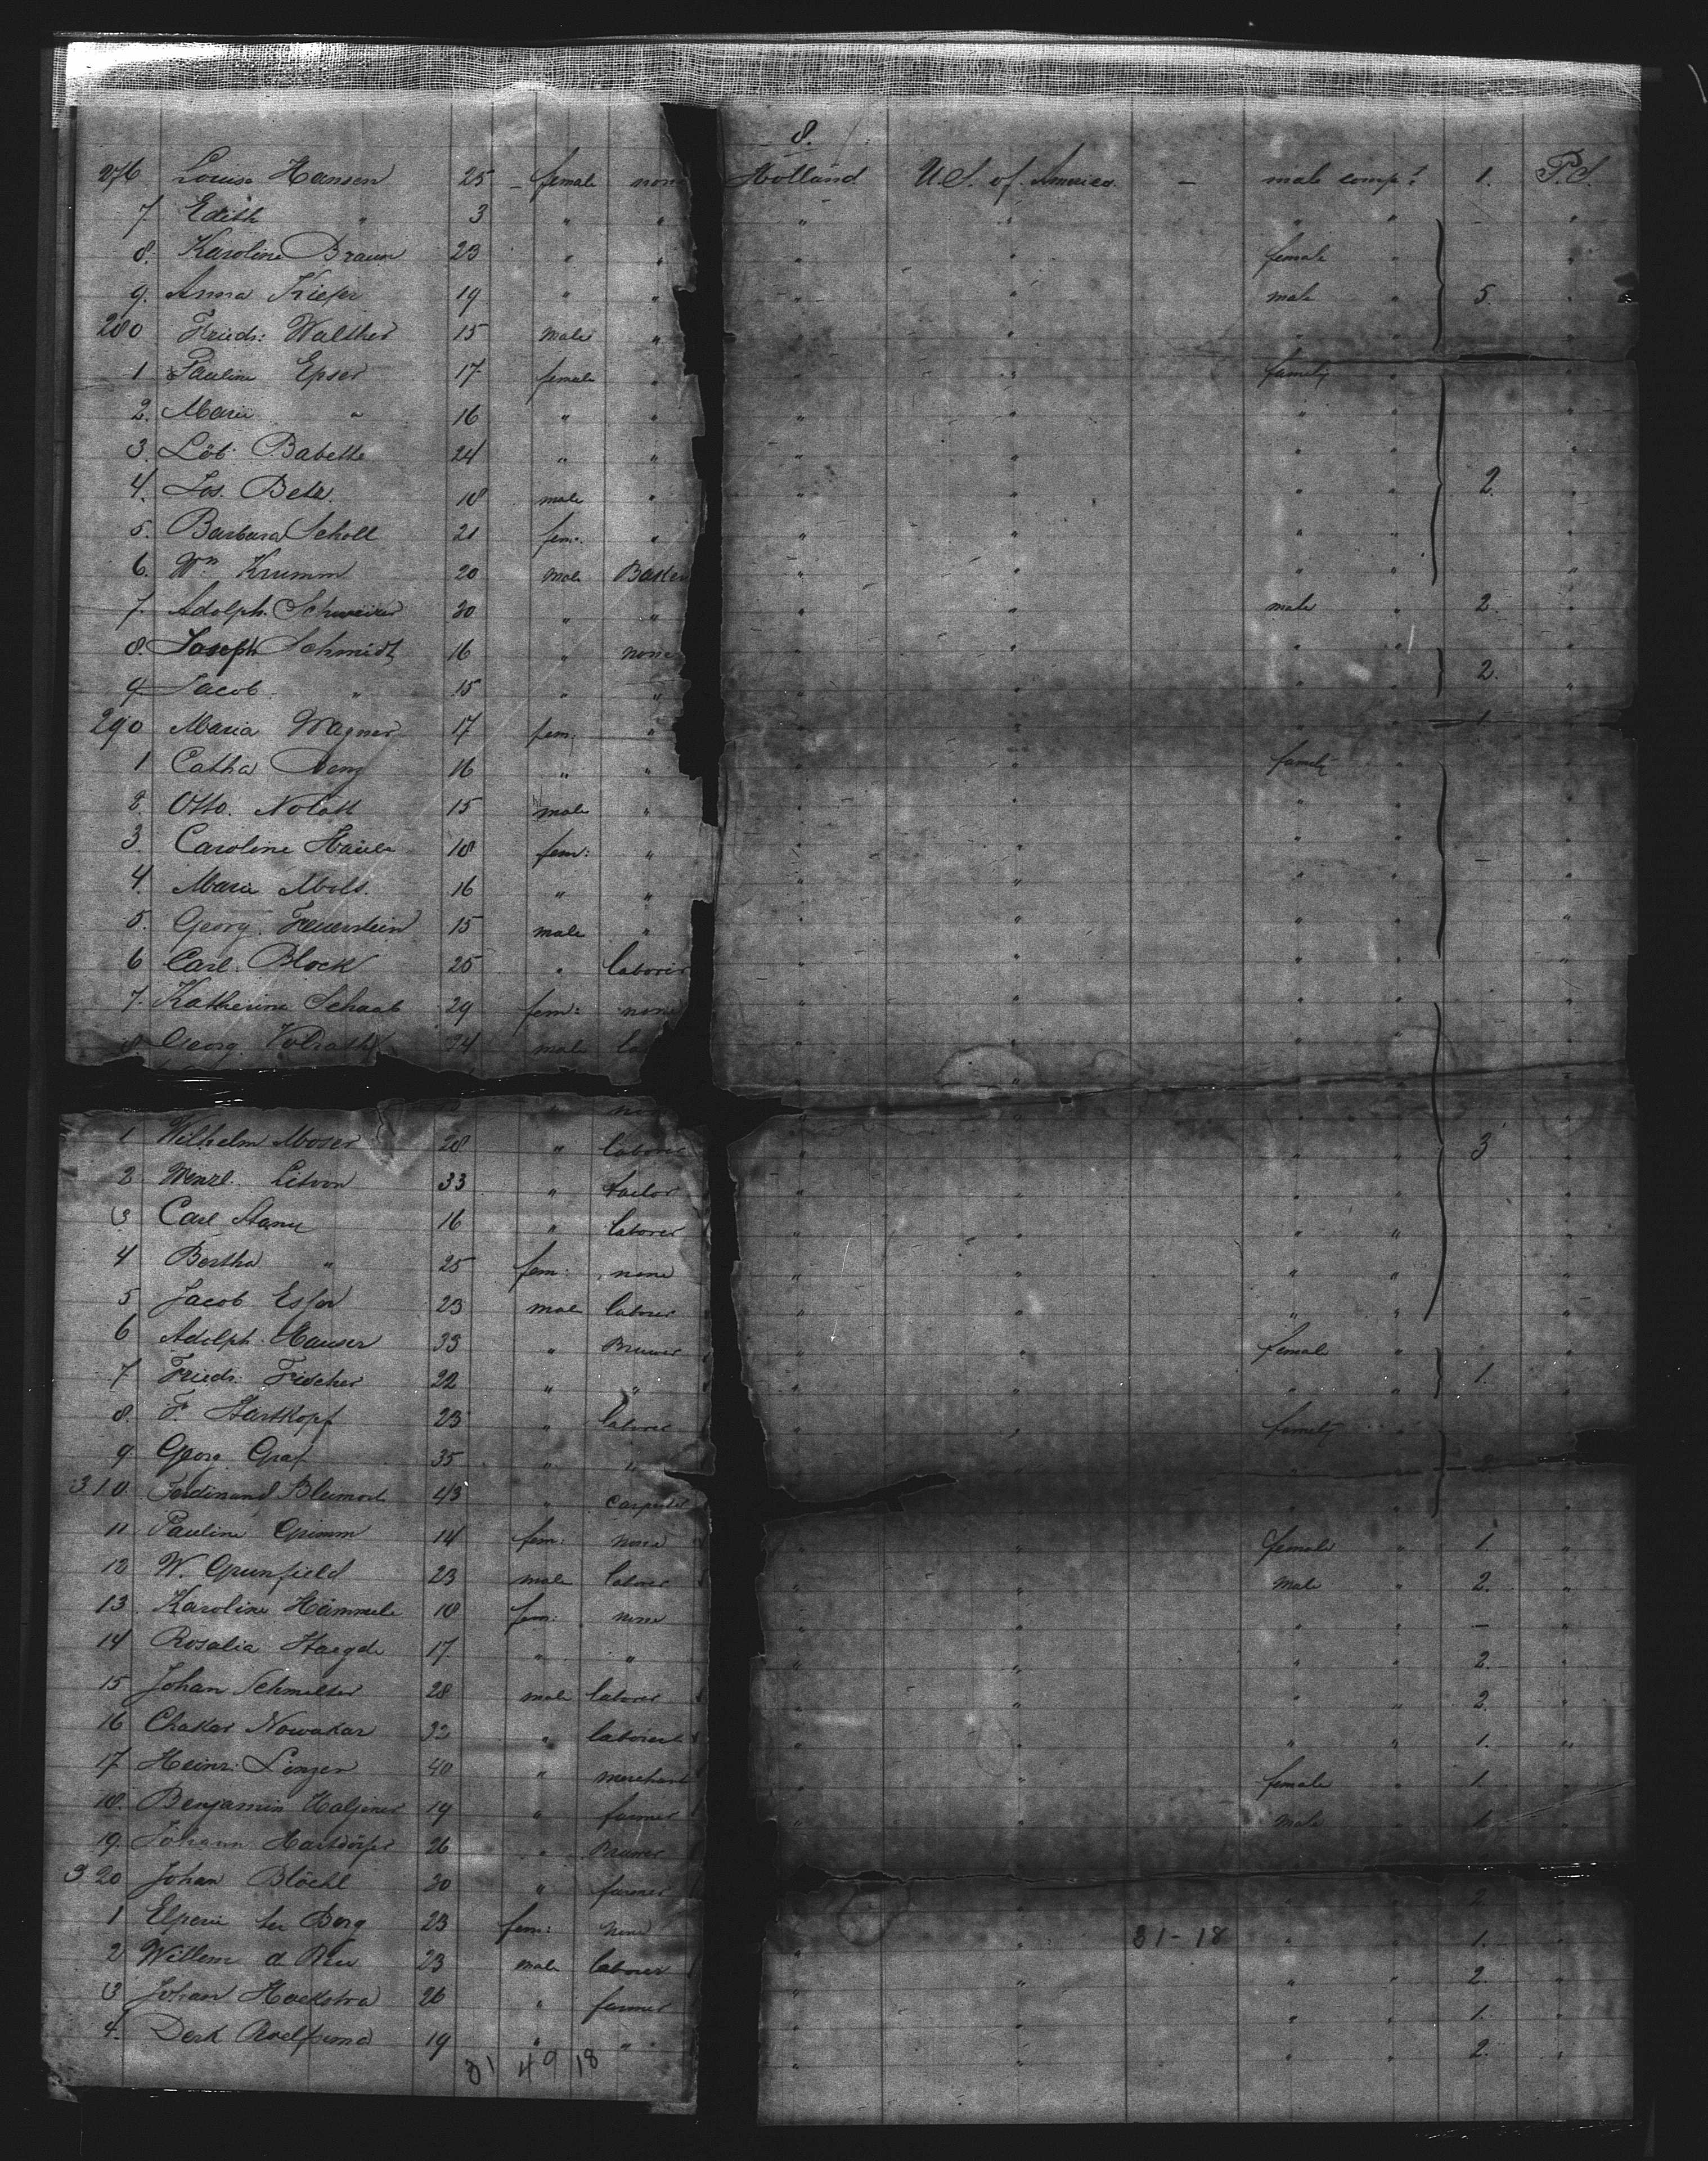 8.
276 Louise Hansen 25 - female none Holland U.S. of America - male comp: 1. P.S.
7 Edith " 3 " " " " " " - "
8. Karoline Braun 23 " " " " female " "
9. Anna Kiefer 19 " " " " male " 5. "
280 Friedr: Walther 15 male " " " " " "
1 Pauline Epser 17 female " " " family " "
2. Marie " 16 " " " " " " "
3. Löb Babette 24 " " " " " " "
4. Jos. 18 male " " " " " 2. "
5. Barbara Scholl 21 fem: " " " " " "
6. Wm Krumm 20 male Baker " " " " "
7. Adolph. Schweizer 30 " " " " male " 2. "
8. Joseph Schmidt 16 " none " " " " "
9 Jacob " 15 " " " " " " 2. "
290 Maria Wagner 17 fem: " " " " " 1. "
1 Catha 16 " " " " family "
2. Otto. 15 male " " " " "
3. Caroline 18 fem: " " " " "
4. Marie 16 " " " " " " -
5. Georg. Feuerstein 15 male " " " " " "
6 Carl. Block 25 " laborer " " " " "
7. Katherine Schaab 29 fem: none " " " " "
8 Georg 34 male " " " " "
1 Wilhelm Moser 28 " laborer " " " " 3 "
2 Wenzl. 33 " tailor " " " " "
3 Carl 16 " laborer " " " " "
4 Bertha " 25 fem: none " " " " "
5 Jacob 23 male laborer " " " " "
6 Adolph. Hauser 33 " Brewer " " female " "
7 Friedr. Fischer 22 " " " " " " 1. "
8. F. Hartkopf 23 " laborer " " family "
9 Georg Graf 35 " "
310 Ferdinand 43 " Carpenter
11 Pauline Grimm 14 fem: none " " female " 1. "
12 W. Grunfield 23 male laborer " " male " 2. "
13. Karoline Hämmele 18 fem: none " " " " - "
14 Rosalia 17 " " " " " " 2. "
15 Johan Schmelter 28 male laborer " " " " 2. "
16 Nowakar 32 " laborer " " " " 1. "
17. Heinr: Linzen 40 " merchant " " female " 1. "
18. Benjamin 19 " farmer " " male " 1. "
19. Johann Hartdörfer 26 " Brewer
320 Johan Blöchl 30 " farmer 2
1 ter Borg 23 fem: none " " 31-18 " " 1. "
2 Willem 23 male laborer " " " " 2. "
3 Johan Hoekstra 26 " farmer " " " " 1. "
4. Derk 19 " " " " " " 2. "
31 49 18